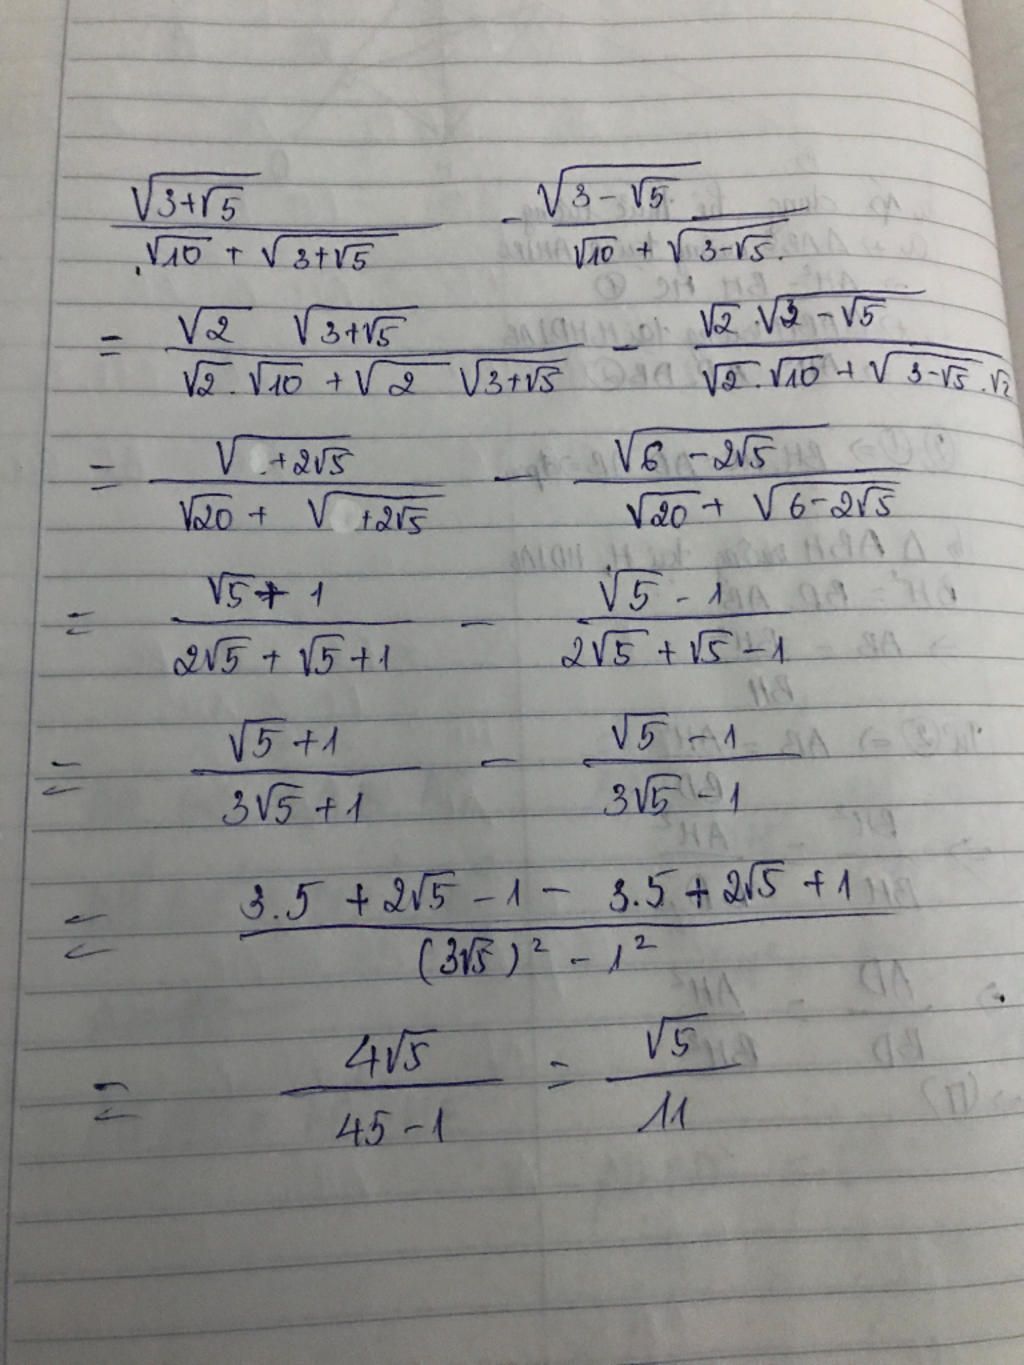 √(3+√5) / (√10 + √(3+√5)) - √(3-√5) / (√10 + √(3-√5))
= √2 √(3+√5) / (√2.√10 + √2 √(3+√5)) - √2.√(3-√5) / (√2.√10 + √(3-√5).√2)
= √( +2√5) / (√20 + √( +2√5)) - √(6-2√5) / (√20 + √(6-2√5))
= (√5+1) / (2√5 + √5 + 1) - (√5-1) / (2√5 + √5 - 1)
= (√5+1) / (3√5+1) - (√5-1) / (3√5-1)
= (3.5 + 2√5 - 1 - 3.5 + 2√5 + 1) / ((3√5)² - 1²)
= 4√5 / (45-1) = √5 / 11